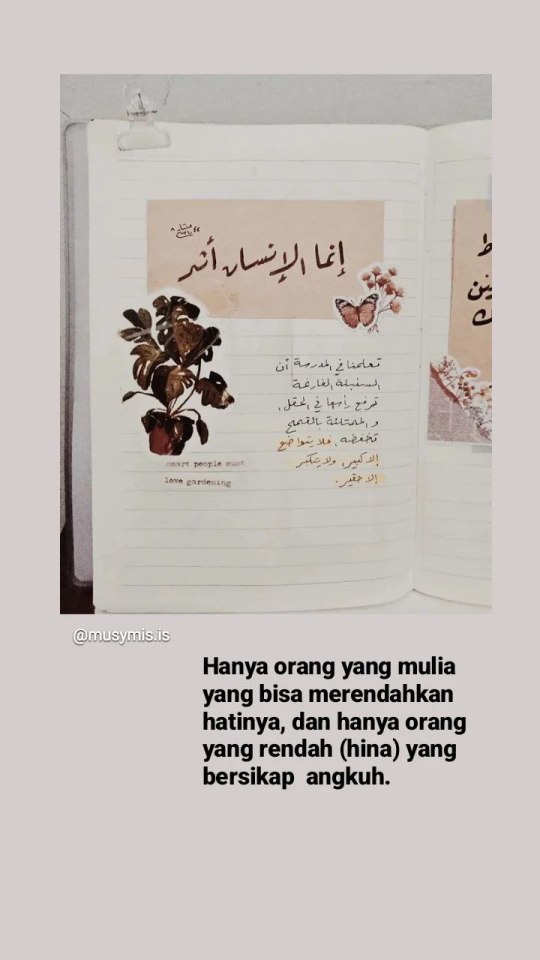 إنما الإنسان أثر
تعلمنا في المدرسة أن
السنبلة الفارغة
ترفع رأسها في الحقل،
والممتلئة بالقمح
تخفضه، فلا يتواضع
إلا كبير، ولا يتكبر
إلا حقير.
smart people must
love gardening
@musymis.is
Hanya orang yang mulia
yang bisa merendahkan
hatinya, dan hanya orang
yang rendah (hina) yang
bersikap angkuh.